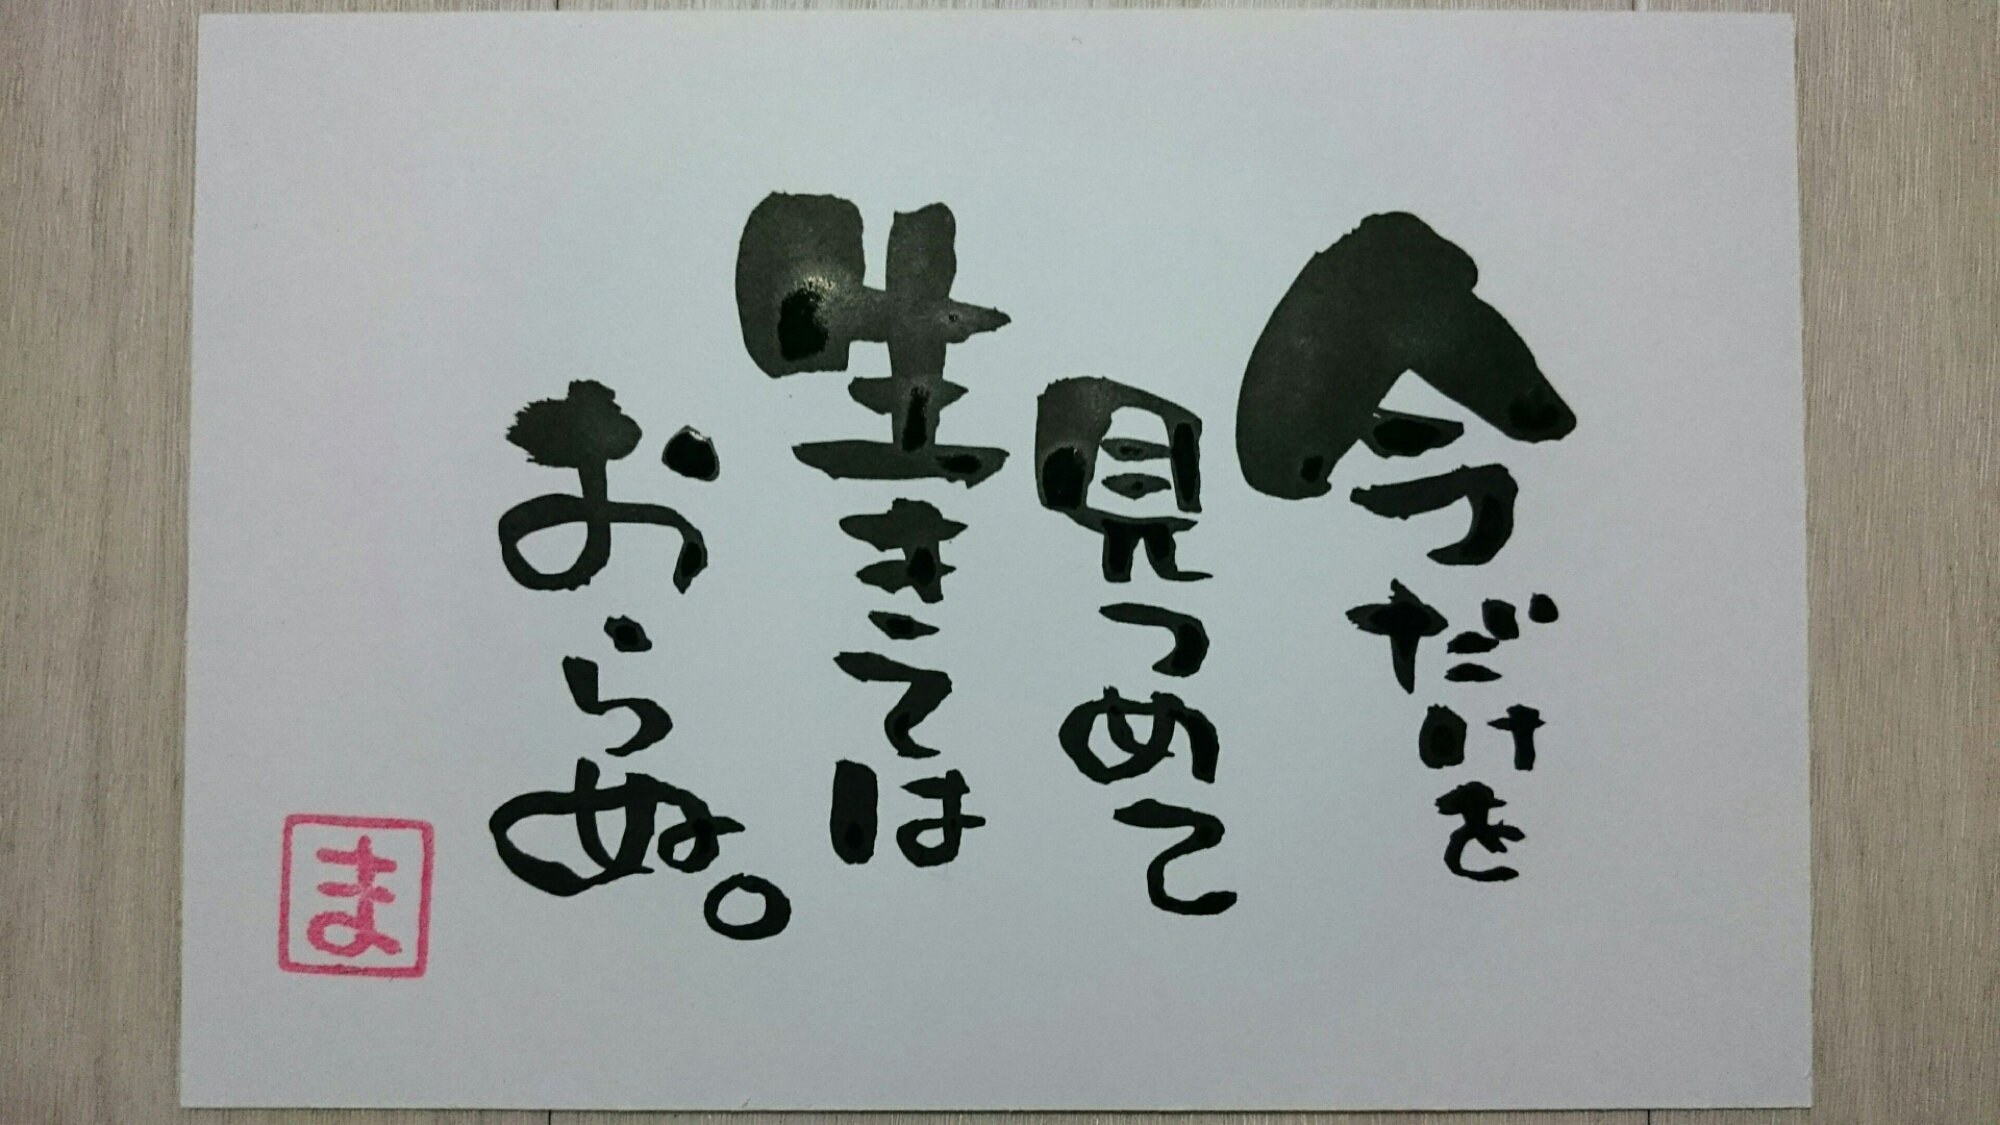 今だけを
見つめて
生きては
おらぬ。
ま